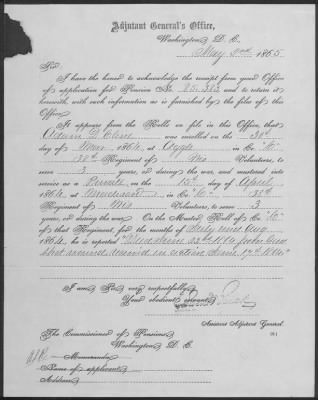 Adjutant General's Office,
Washington, D. C.,
May 2nd 1865
Sir:
I have the honor to acknowledge the receipt from your Office
of application for Pension No. 85,382 and to return it
herewith, with such information as is furnished by the files of this
Office.
It appears from the Rolls on file in this Office, that
was enrolled on the 30th
day of 1864, at Argyle in Co.
Regiment of Wis Volunteers, to
serve 3 years, or during the war, and mustered into
service as a Private on the 15th day of April
1864, at in Co.
Regiment of Wis Volunteers, to serve 3
years, or during the war. On the Muster Roll of Co.
of that Regiment, for the months of July and Aug
1864, he is reported "Died June 1864 from Gun
shot wound received in action June 17th 1864"
I am, Sir, very respectfully,
Your obedient servant,
Assistant Adjutant General.
The Commissioner of Pensions,
Washington, D. C.
Memoranda:
Name of applicant,
Address,